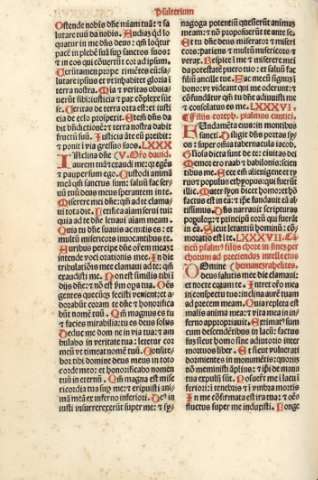 Psalterium
Ostende nobis dñe miam tuã: ⁊ sa
lutare tuũ da nobis. Audiaȝ qd lo
quatur in me dñs deus: qm̃ loqtur
pacẽ in plebẽ suã Et super sanctos suos ⁊
in eos qui conuertuntur ad cor
Ueruntamen prope timẽtes eũ: sa
lutare ipsius: vt inhabitet gloria in
terra nostra. Mia ⁊ veritas obuia
uerũt sibi: iusticia ⁊ pax
sunt. Ueritas de terra orta est: ⁊ iusti
cia de celo prospexit. Eteni dñs da
bit benignitatẽ: ⁊ terra nostra dabit
fructũ suũ. Iusticia ãte eũ
⁊ ponet ĩ via gressus suos. LXXX
Inclina dñe V. Oro dauid.
aurem tuã ⁊ exaudi me: qm̃ egẽs
⁊ pauper sum ego. Custodi animã
meã qm̃ sanctus sum: saluũ fac ser
uũ tuũ deus meus sperantem ĩ te.
Miserere mei dñe: qm̃ ad te clama
ui tota die. letifica aĩam serui tui:
quia ad te dñe leuaui aĩam meam.
Quia tu dñe suauis ac mitis es: ⁊
multe misericordie inuocantibus te.
Auribus percipe dñe orõem meã: ⁊
intende voci orationis mee. In die
tribulatiõis mee clamaui ad te: qã
exaudisti me. Non est similis tibi ĩ
dijs dñe: ⁊ nõ est scďm opa tua. Oẽs
gentes quascũqȝ fecisti veniẽt: ⁊ a
dorabũt coram te dñe ⁊ glorificabũt
nomẽ tuũ. Qm̃ magnus es tu
⁊ faciẽs mirabilia: tu es deus solus
Deduc me dñe in via tua: ⁊ am
bulabo in veritate tua: letetur cor
meũ vt timeat nomẽ tuũ. Confite
bor tibi domine deus meus in toto
corde meo: ⁊ glorificabo nomen
tuũ in eternũ. Qm̃ magna est mise
ricordia tua sup me: ⁊ eripuisti ani
mã meã ex inferno inferiori. Deus in
iusti insurrexerũt super me: ⁊ sy
nagoga potentiũ quesierũt animã
meam: ⁊ non proposuerũt te ante se.
Et tu dñe deus miserator ⁊ miseri
cors: patiens ⁊ multe misericordie ⁊
verax. Respice ĩ me ⁊ miserere mei
da potestatem puero tuo: ⁊ saluũ fac
filiũ ancille tue. Fac mecũ signũ ĩ
bono: vt videant qui me oderunt ⁊
cõfundãtur: qm̃ tu dñe adiuuisti me
⁊ consolatus es me. LXXXVI.
Filijs core ph. psalmus cantici.
Fundamẽta eius in montibus
sanctis. Diligit dñs portas sy
on: super oĩa tabernacula iacob.
Gloriosa dicta sunt de te: ciuitas dei
Memor ero raab ⁊ babilonis scien
tibus me. Ecce alienigene ⁊ ty
rus: ⁊ populus ethyopũ: hi fuerũt illic
Nunquid syon dicet homo: ⁊ homo nat⁹
est in ea: ⁊ ipse fundauit eã al
tissimus. Dñs narrabit in scripturis
populoꝝ: ⁊ principũ hoꝝ qui fuerũt
in ea. Sicut letantiũ oĩm: ha
bitatio est ĩ te. LXXXVII. Can
ticũ psalmi filijs chore in finẽ per
chorum ad precinendũ intellectus
Domine eman israhelites.
deus salutis mee: in die clamaui:
⁊ nocte coram te. Intret orõ mea
in conspectu tuo: inclina aurẽ tuã ad
precem meam. Quia repleta est
malis anima mea: ⁊ vita mea in in
ferno appropinquauit. Estimat⁹ sum
cum descendẽtibus in lacũ: factus
sum sicut homo sine adiutorio inter
mortuos liber. Et sicut vulnerati
dormientes in monumẽtis: quoꝝ
nõ meministi ãplius: ⁊ ipsi de manu
tua expulsi sũt. Posuerũt me ĩ lacu ĩ
feriori: ĩ tenebris ⁊ ĩ vmbra mortis
In me cõfirmatus est furor tuus: ⁊ oẽs
fluctus super me induxisti. Longe